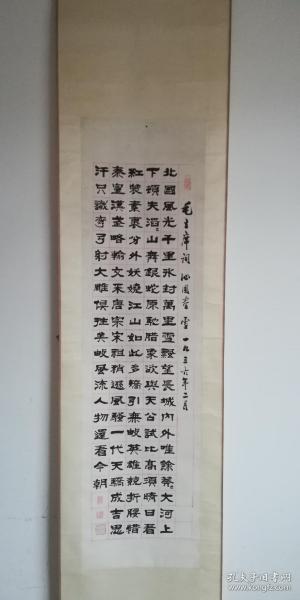 毛主席詞 沁園春 雪 一九三六年二月
北國風光千里冰封萬里雪飄望長城内外唯餘莽〻大河上
下頓失滔〻山舞銀蛇原馳臘象欲與天公試比高須晴日看
紅裝素裹分外妖嬈江山如此多嬌引無數英雄競折腰惜
秦皇漢武略輸文采唐宗宋祖稍遜風騷一代天驕成吉思
汗只識彎弓射大雕俱往矣數風流人物還看今朝
孔夫子旧书网